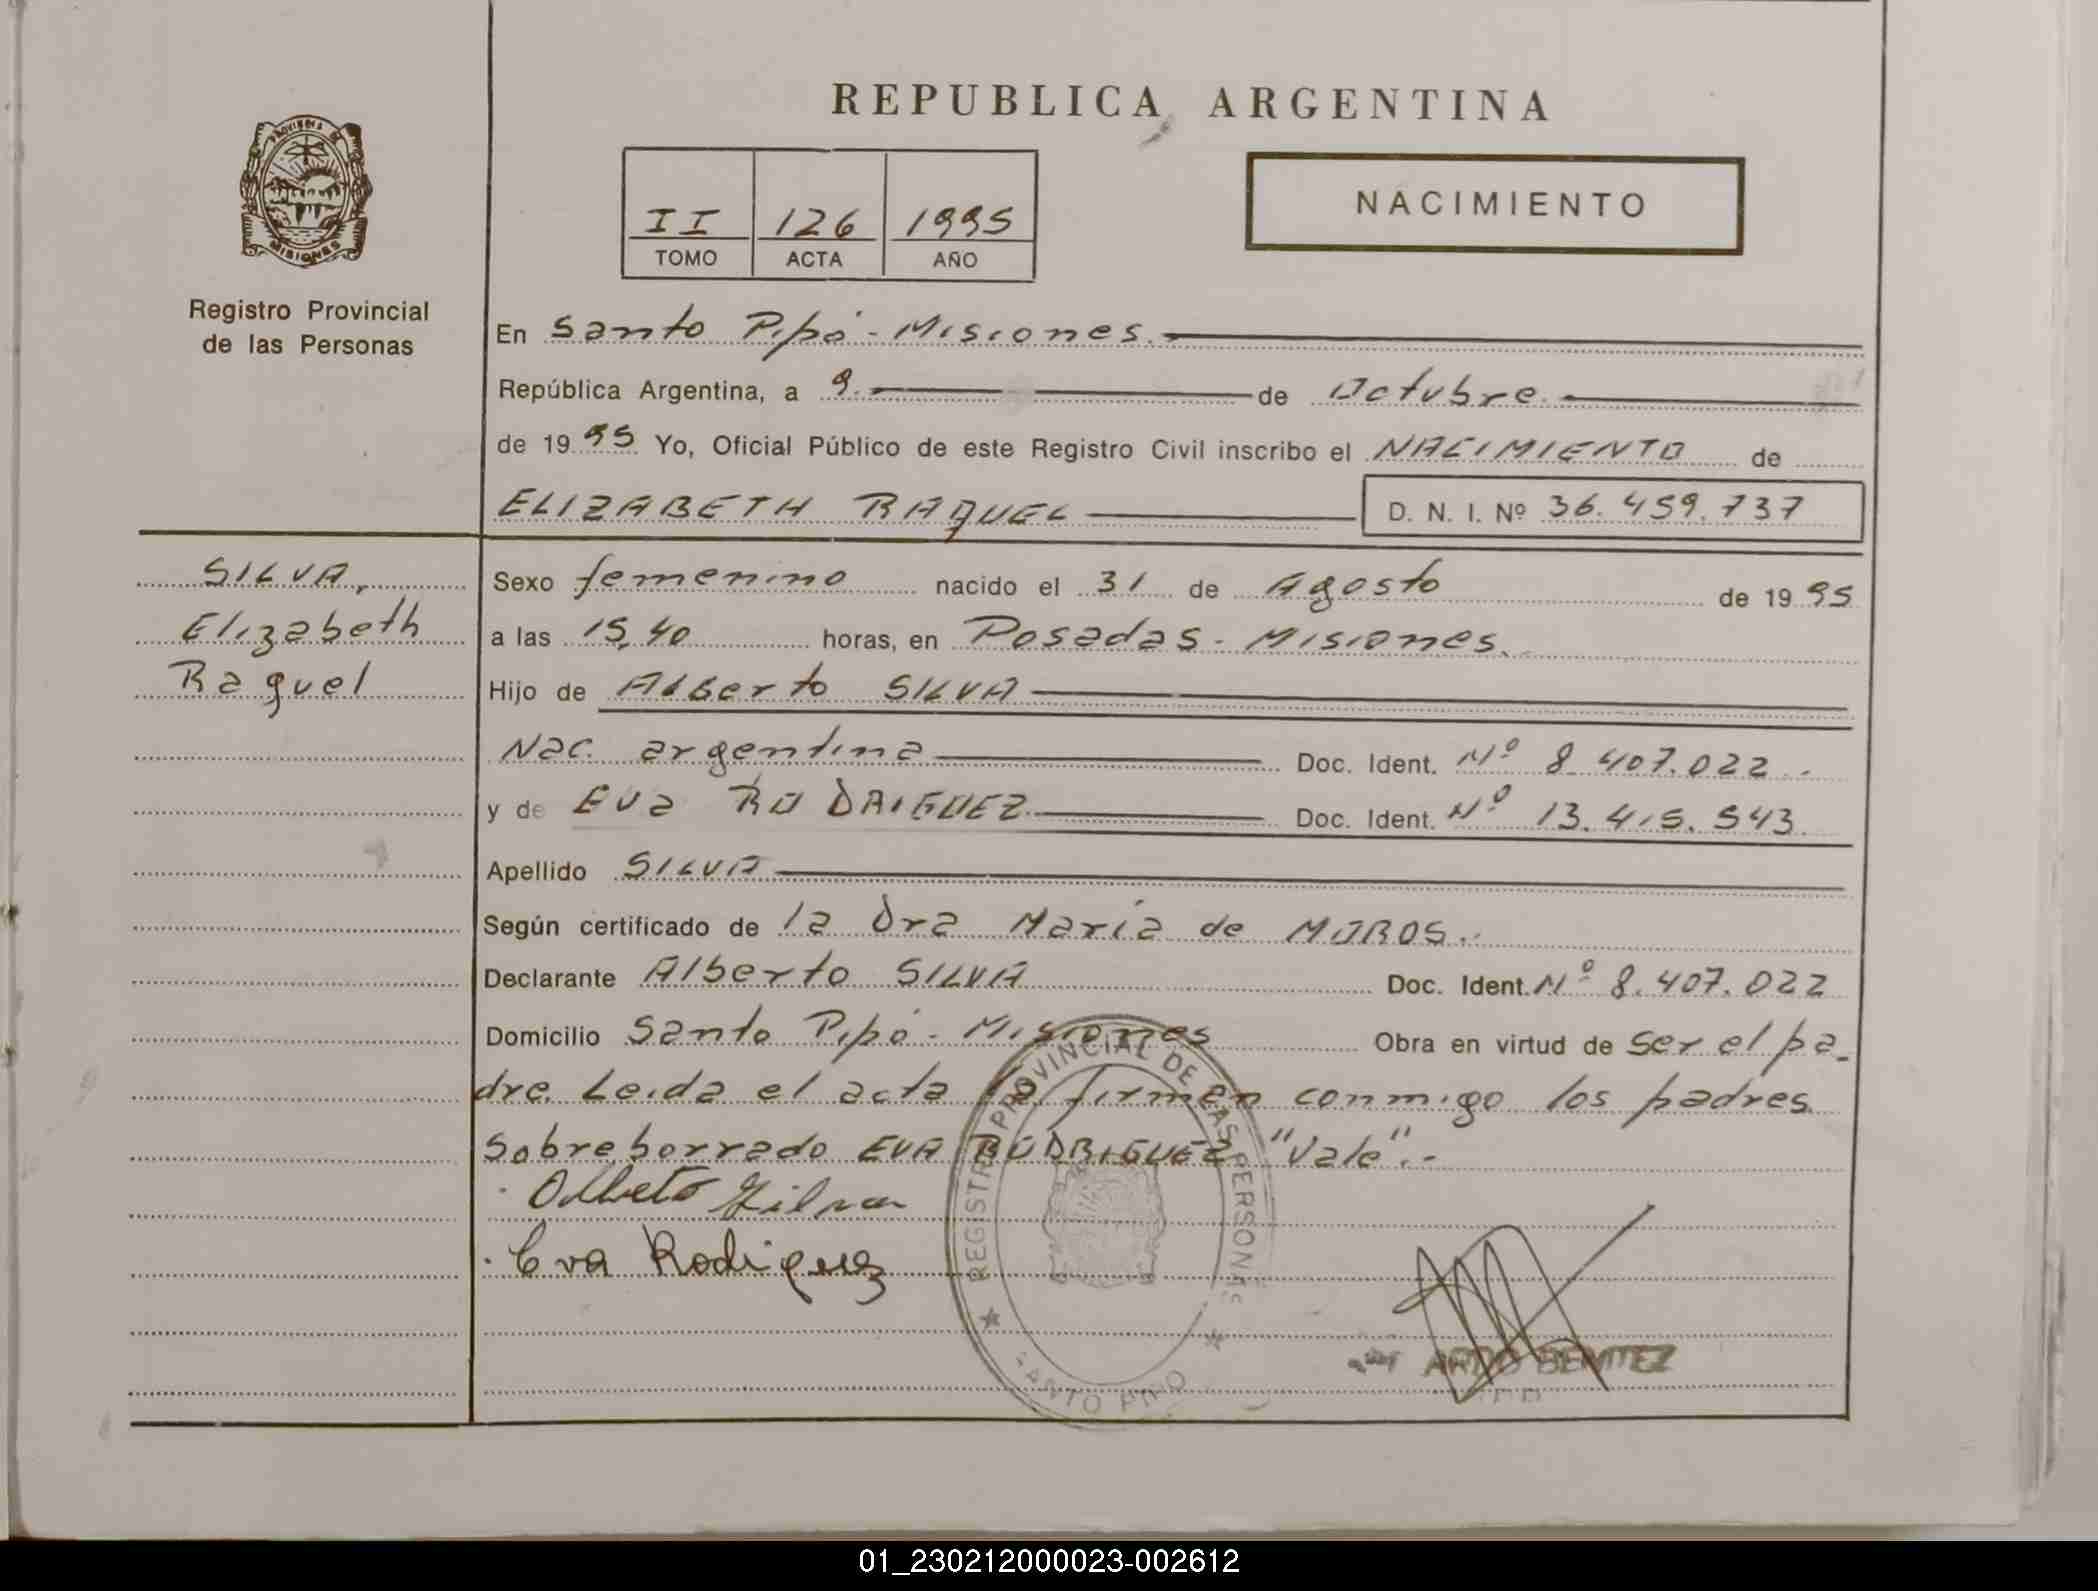 REPUBLICA ARGENTINA
PROVINCIA DE
MISIONES
Registro Provincial
de las Personas
II 126 1995
TOMO ACTA AÑO
NACIMIENTO
En Santo Pipó - Misiones.
República Argentina, a 9. de Octubre.
de 1995 Yo, Oficial Público de este Registro Civil inscribo el NACIMIENTO de
ELIZABETH RAQUEL D. N. I. Nº 36.459.737
SILVA,
Elizabeth
Raquel
Sexo femenino nacido el 31 de Agosto de 1995
a las 15,40 horas, en Posadas - Misiones.
Hijo de Alberto SILVA
Nac. argentina Doc. Ident. Nº 8.407.022.-
y de Eva RODRIGUEZ Doc. Ident. Nº 13.415.543.
Apellido SILVA
Según certificado de la Dra María de MOROS.-
Declarante Alberto SILVA Doc. Ident. Nº 8.407.022
Domicilio Santo Pipó - Misiones Obra en virtud de ser el pa-
dre. Leida el acta la firman conmigo los padres
Sobreborrado EVA RODRIGUEZ "Vale".-
Alberto Silva
Eva Rodriguez
REGISTRO PROVINCIAL DE LAS PERSONAS
SANTO PIPO
BENITEZ
01_230212000023-002612